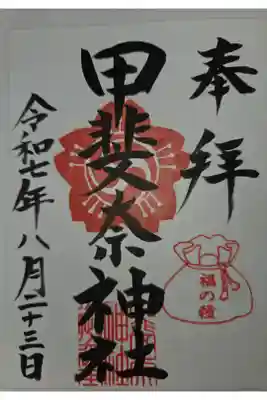 奉拝
甲斐奈神社
福の種
令和七年八月二十三日